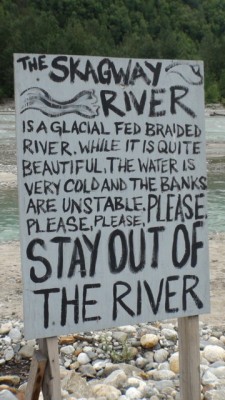 THE SKAGWAY
RIVER
IS A GLACIAL FED BRAIDED
RIVER. WHILE IT IS QUITE
BEAUTIFUL, THE WATER IS
VERY COLD AND THE BANKS
ARE UNSTABLE, PLEASE,
PLEASE, PLEASE,
STAY OUT OF
THE RIVER